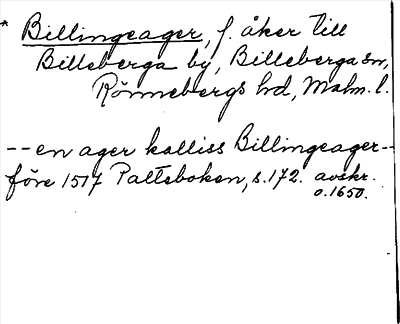 * Billingeager, f. åker till
Billeberga by, Billeberga sn,
Rönnebergs hd, Malm. l.
--en ager kalliss Billingeager--
före 1517 Paltsboken, s. 172. avskr.
o. 1650.